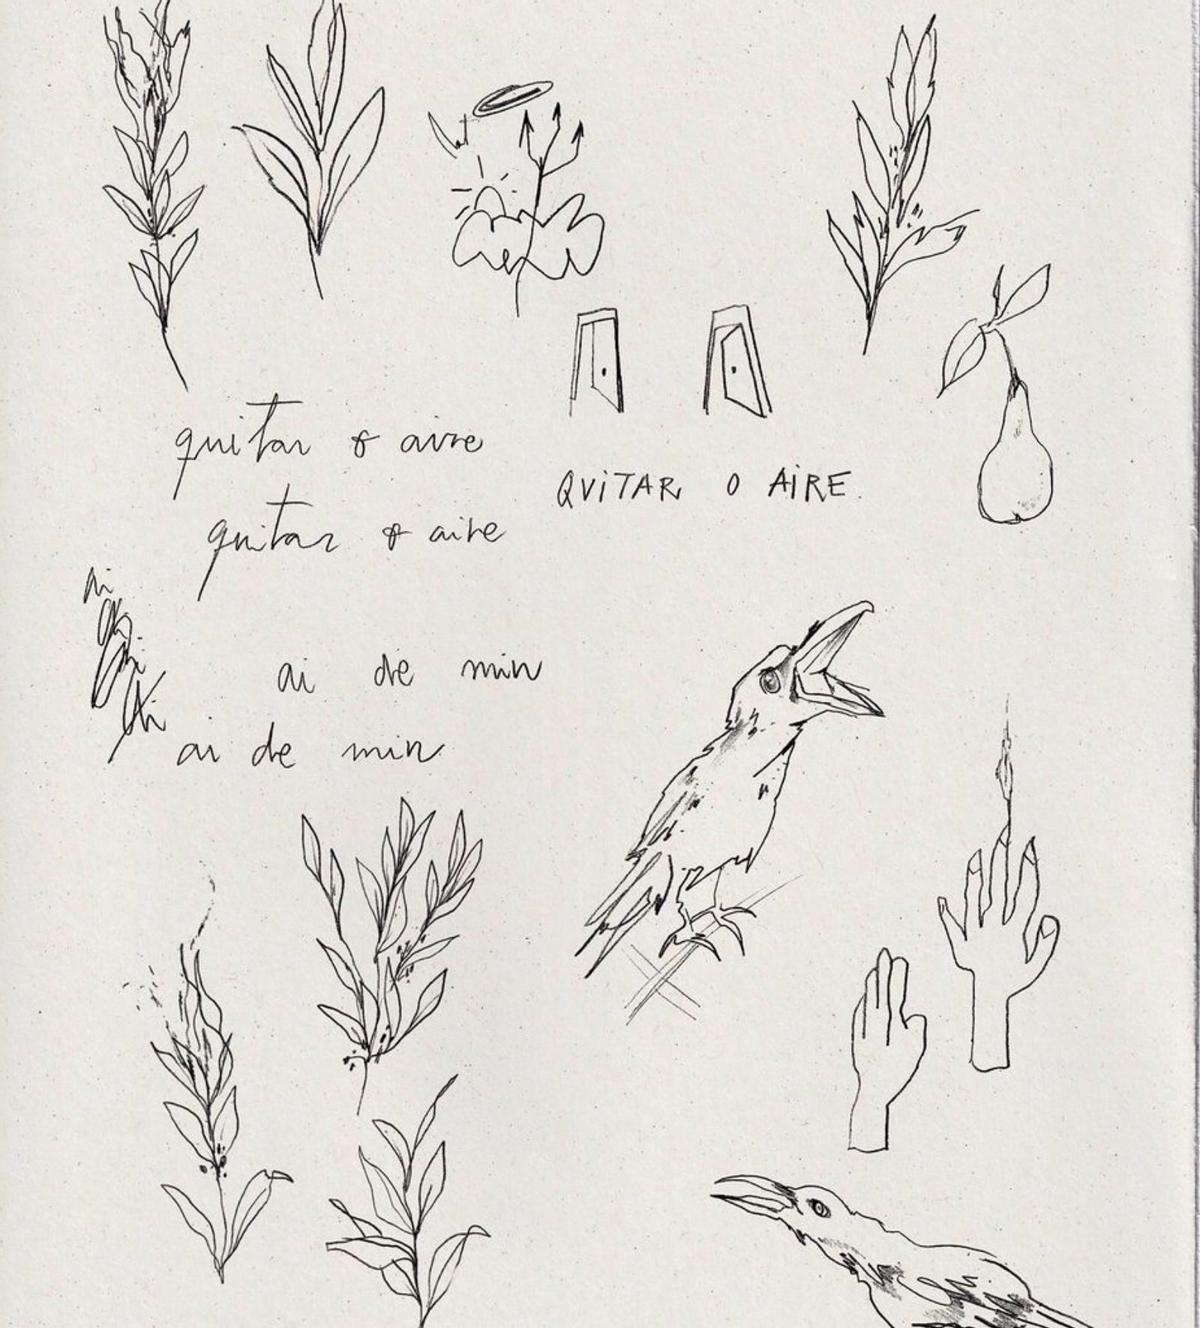 quitar o aire
QUITAR O AIRE.
quitar o aire
ai
ai de min
ai de min